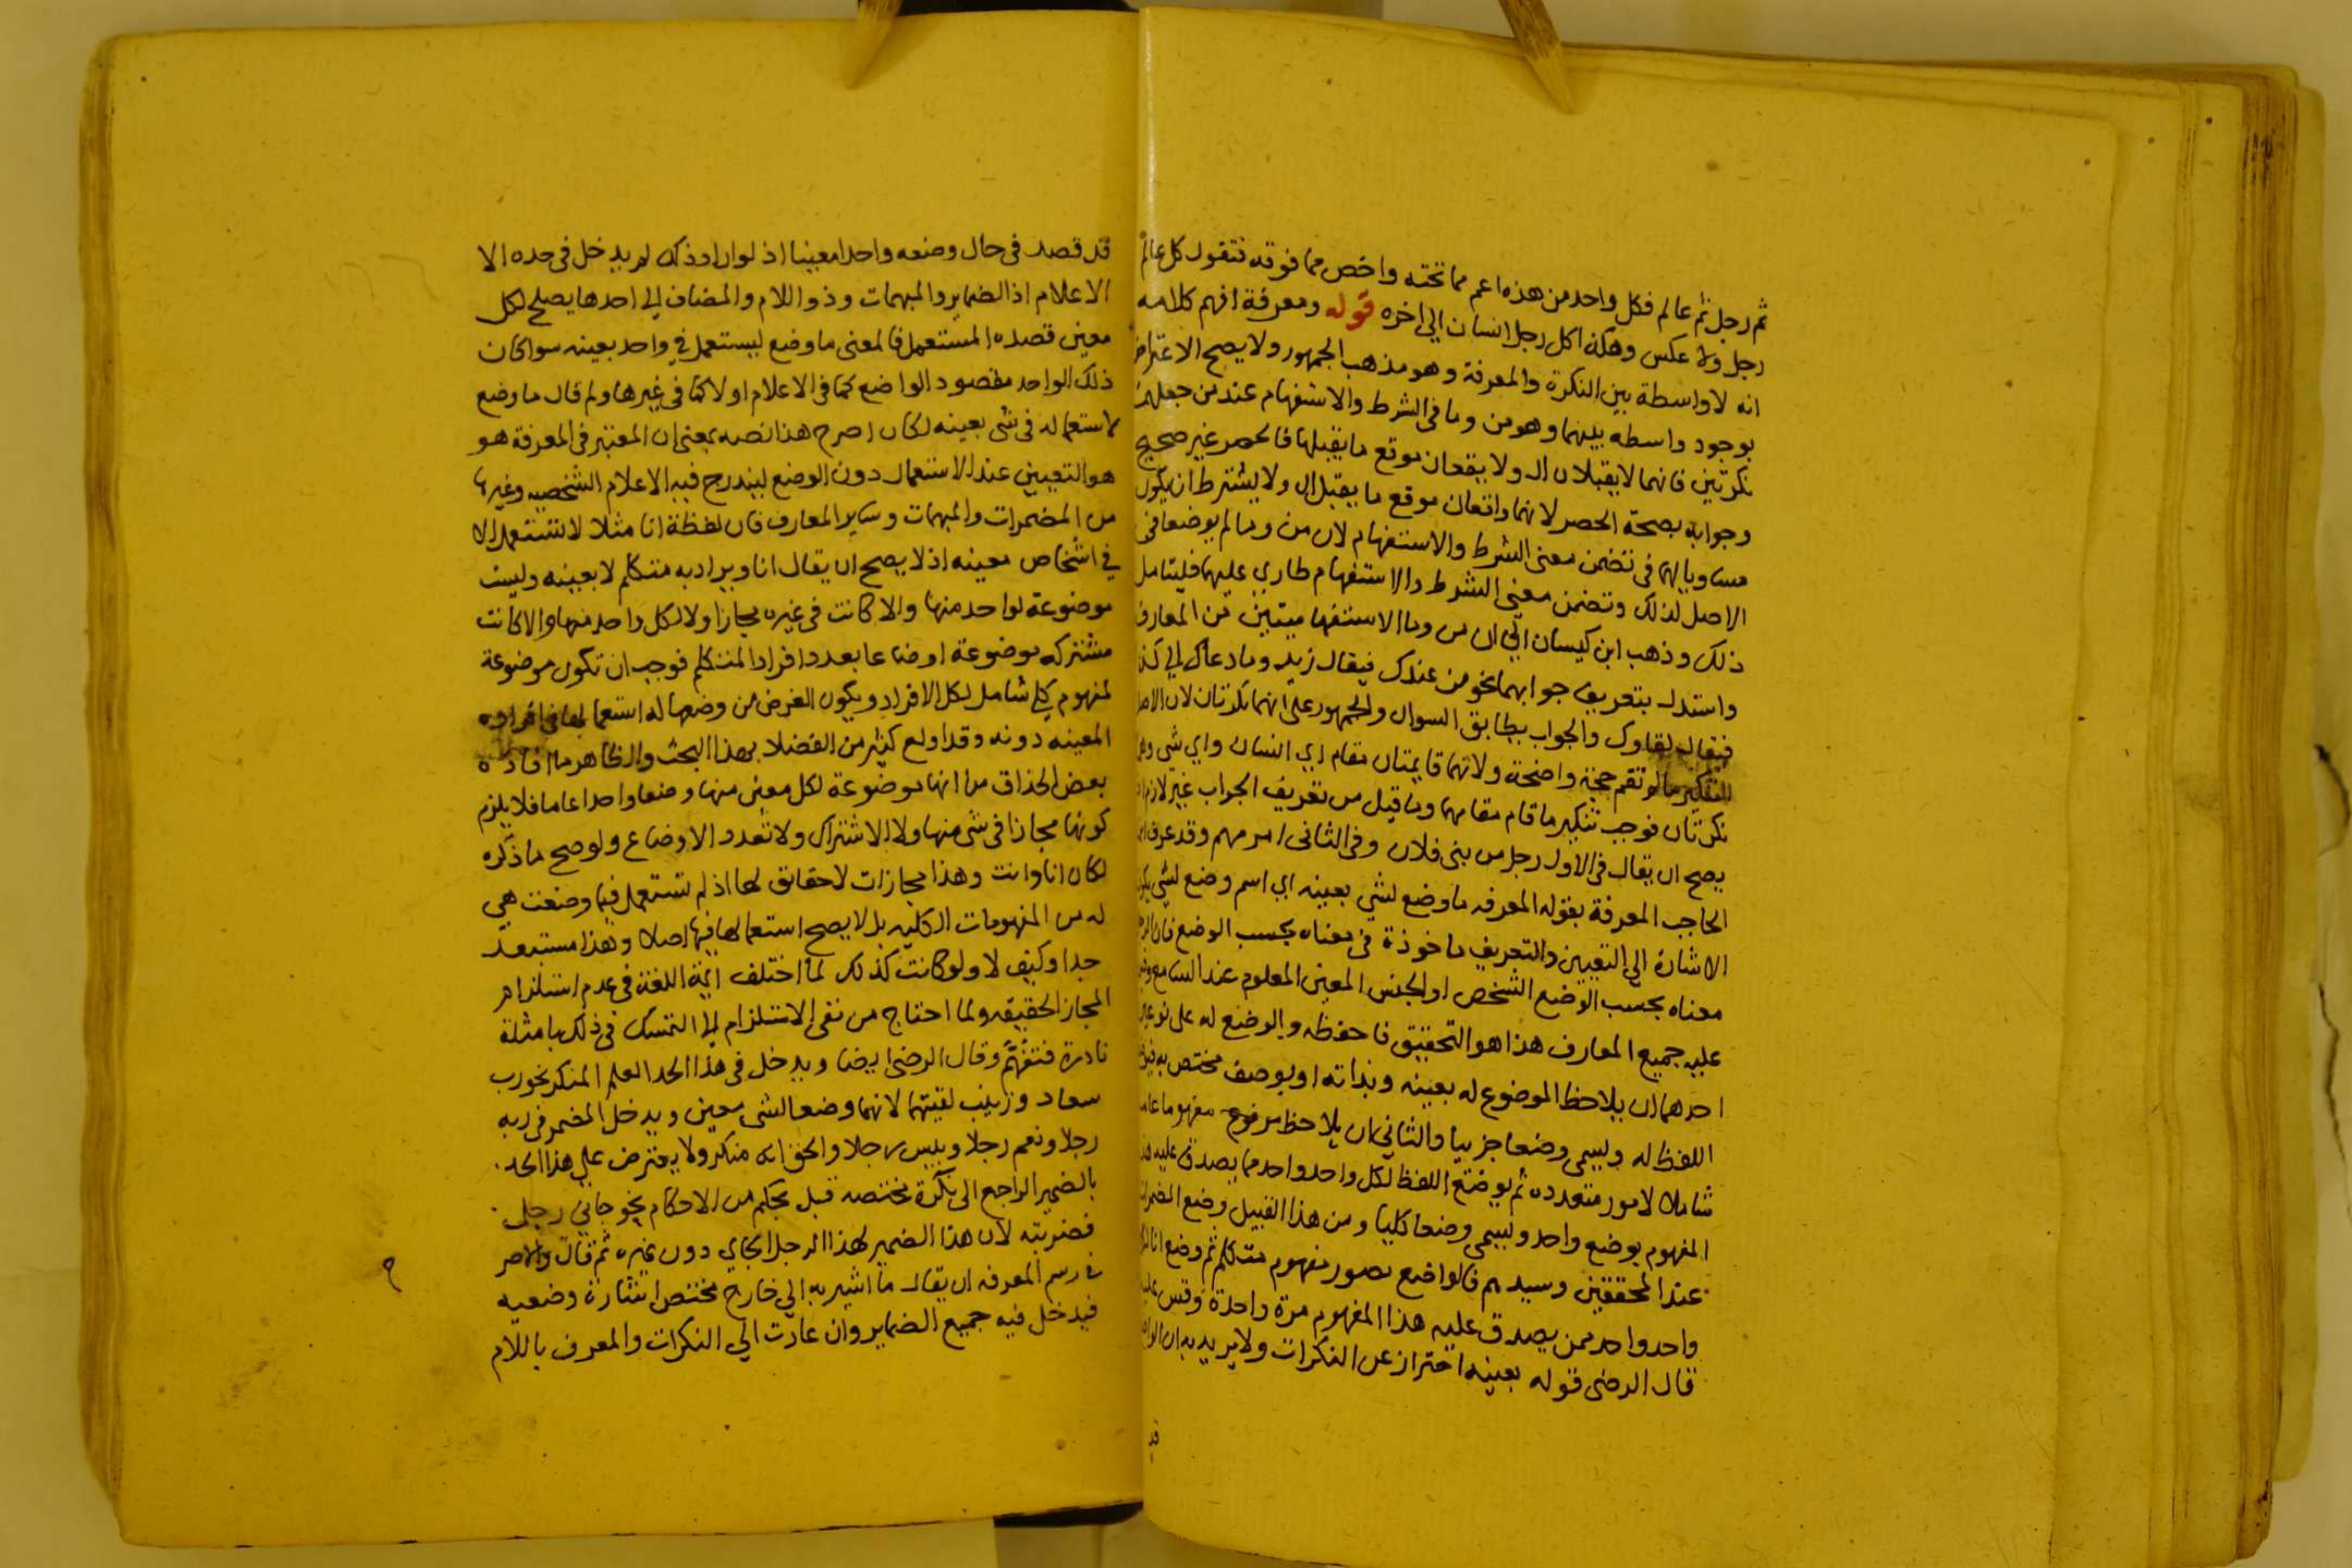 ثم رجل ثم عالم فكل واحد من هذه اعم مما تحته واخص مما فوقه فتقول كل عالم
رجل ولا عكس وهكذا كل رجل انسان الى اخره قوله ومعرفة افهم كلامه
انه لا واسطة بين النكرة والمعرفة وهو مذهب الجمهور ولا يصح الاعتراض
بوجود واسطه بينهما وهو من وما فى الشرط والاستفهام عند من جعلهما
نكرتين فانهما لا يقبلان ال ولا يقعان موقع ما يقبلها فالحصر غير صحيح
وجوابه بصحة الحصر لانهما واقعان موقع ما يقبل ال ولا يشترط ان يكون
مساويا لهما فى تضمن معنى الشرط والاستفهام لان من وما لم يوضعا فى
الاصل لذلك وتضمن معنى الشرط والاستفهام طاري عليهما فليتامل
ذلك وذهب ابن كيسان الي ان من وما الاستفهاميتين من المعارف
واستدل بتعريف جوابهما نحو من عندك فيقال زيد وما دعاك الى كذا
فيقال لقاوك والجواب يطابق السوال والجمهور على انهما نكرتان لان الاصل
التنكير ما لم تقم حجة واضحة ولانهما قايمتان مقام اي انسان واي شى وهما
نكرتان فوجب تنكير ما قام مقامهما وما قيل من تعريف الجواب غير لازم اذ
يصح ان يقال فى الاول رجل من بنى فلان وفى الثانى امر مهم وقد عرف ابن
الحاجب المعرفة بقوله المعرفه ما وضع لشي بعينه اي اسم وضع لشي
الاشارة الى التعيين والتعريف ماخوذة فى معناه بحسب الوضع فان
معناه بحسب الوضع الشخص او الجنس المعين المعلوم عند السامع
عليه جميع المعارف هذا هو التحقيق فاحفظه والوضع له على نوعين
احدهما ان يلاحظ الموضوع له بعينه وبذاته او بوصف مختص به
اللفظ له ويسمى وضعا جزييا والثاني ان يلاحظ مفهوما عاما
شاملا لامور متعدده ثم يوضع اللفظ لكل واحد واحد مما يصدق عليه هذا
المفهوم بوضع واحد ويسمى وضعا كليا ومن هذا القبيل وضع المضمرات
عند المحققين وسيدهم فالواضع تصور مفهوم متكلم ثم وضع انا لكل
واحد واحد ممن يصدق عليه هذا المفهوم مرة واحدة وقس عليه
قال الرضى قوله بعينه احتراز عن النكرات ولا يريد به ان الواضع
قد
قد قصد فى حال وضعه واحدا معينا اذ لو اراد ذلك لم يدخل فى حده الا
الاعلام اذ الضماير والمبهمات وذو اللام والمضاف الى احدها يصلح لكل
معين قصده المستعمل فالمعنى ما وضع ليستعمل في واحد بعينه سوا كان
ذلك الواحد مقصود الواضع كما فى الاعلام او لا كما فى غيرها ولو قال ما وضع
لاستعماله فى شى بعينه لكان اصرح هذا نصه بمعنى ان المعتبر فى المعرفة هو
هو التعيين عند الاستعمال دون الوضع ليندرج فيه الاعلام الشخصيه وغيرها
من المضمرات والمبهمات وساير المعارف فان لفظة انا مثلا لا تستعمل الا
في اشخاص معينه اذ لا يصح ان يقال انا ويراد به متكلم لا بعينه وليست
موضوعة لواحد منها والا كانت فى غيره مجازا ولا لكل واحد منها والا كانت
مشتركه موضوعة اوضاعا بعدد افراد المتكلم فوجب ان تكون موضوعة
لمفهوم كلي شامل لكل الافراد ويكون الغرض من وضعها له استعمالها فى افراده
المعينه دونه وقد اولع كثير من الفضلا بهذا البحث والظاهر ما افاده
بعض الحذاق من انها موضوعة لكل معين منها وضعا واحدا عاما فلا يلزم
كونها مجازا فى شى منها ولا الاشتراك ولا تعدد الاوضاع ولو صح ما ذكره
لكان انا وانت وهذا مجازات لا حقائق لها اذ لم تستعمل فيما وضعت هي
له من المفهومات الكليه بل لا يصح استعمالها فيها اصلا وهذا مستبعد
جدا وكيف لا ولو كانت كذلك لما اختلف ايمة اللغة فى عدم استلزام
المجاز الحقيقه ولما احتاج من نفى الاستلزام الى التمسك فى ذلك بامثلة
نادرة فتفهم وقال الرضى ايضا ويدخل فى هذا الحد العلم المنكر نحو رب
سعاد وزينب لقيتهما لانهما وضعا لشى معين ويدخل المضمر فى ربه
رجلا ونعم رجلا وبيس رجلا والحق انه منكر ولا يعترض على هذا الحد
بالضمير الراجع الى نكرة مختصه قبل بحكم من الاحكام نحو جاني رجل
فضربته لان هذا الضمير لهذا الرجل الجاي دون غيره ثم قال والاصر
فى رسم المعرفه ان يقال ما اشير به الى خارج مختص اشارة وضعيه
فيدخل فيه جميع الضماير وان عادت الي النكرات والمعرف باللام